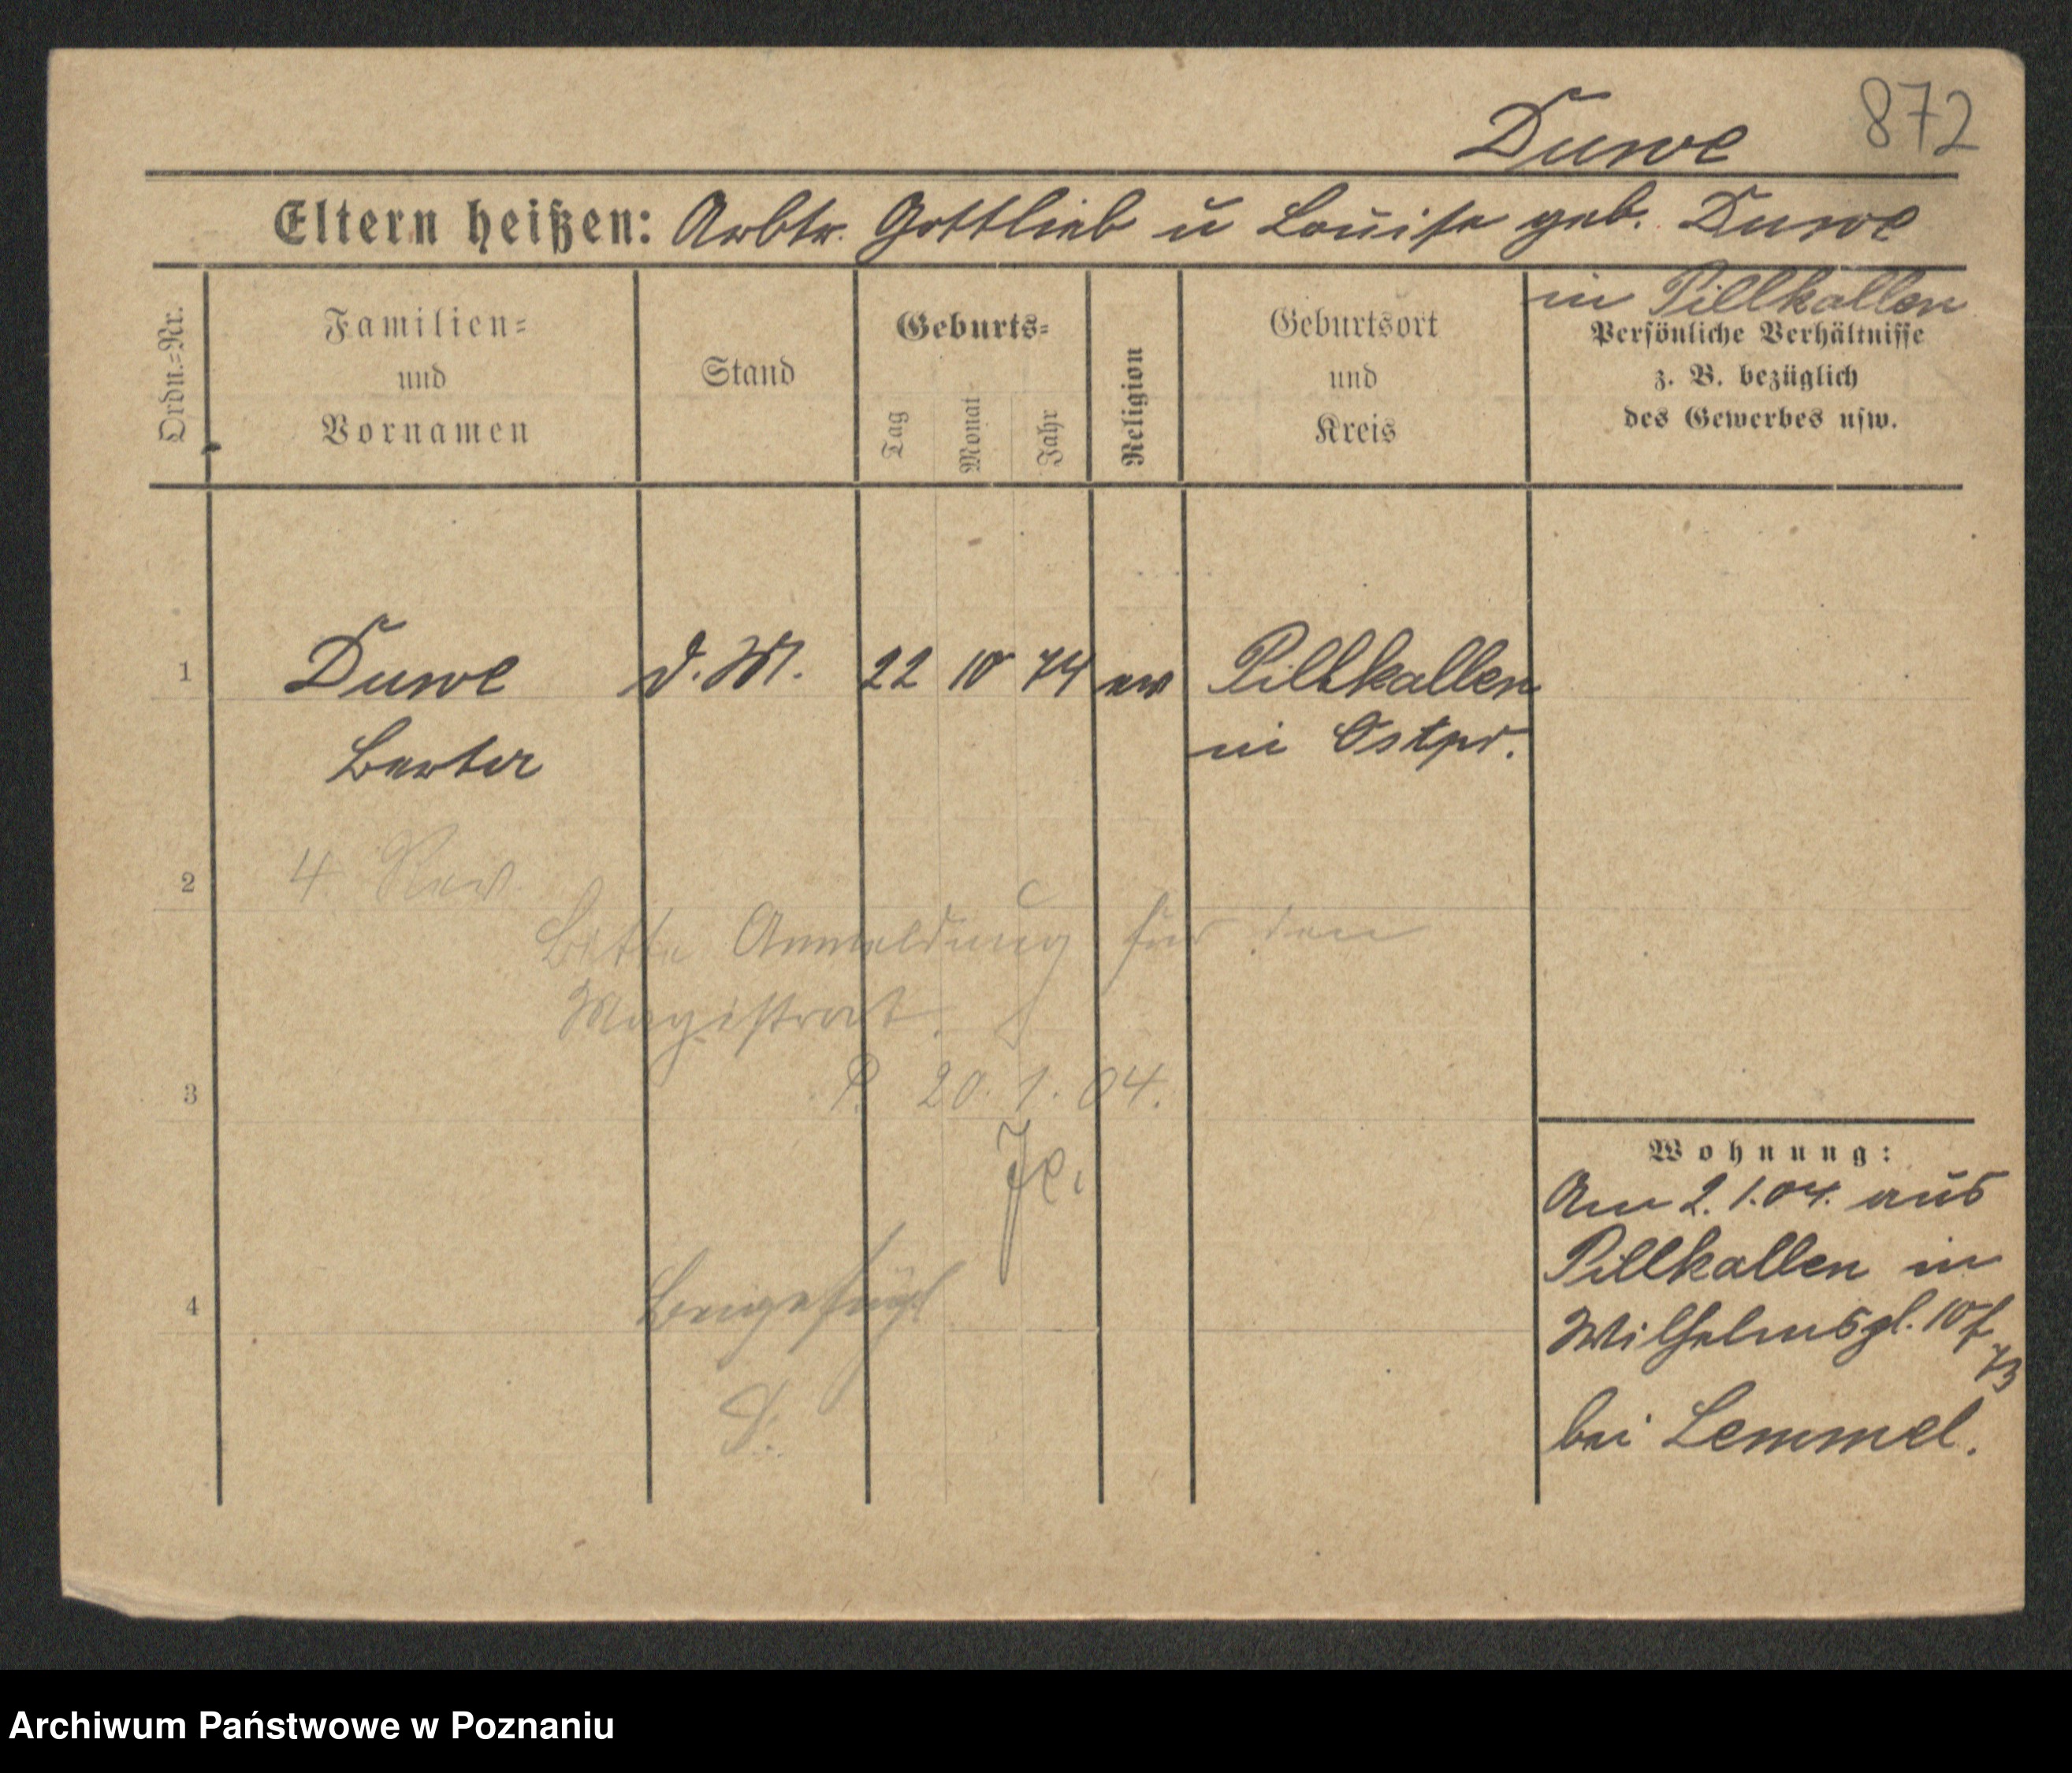 Duwe 872
Eltern heißen: Arbtr. Gottlieb u Louise geb. Duwe
in Pillkallen
Ordn.=Nr.
Familien=
und
Vornamen
Stand
Geburts=
Tag
Monat
Jahr
Religion
Geburtsort
und
Kreis
Persönliche Verhältnisse
z. B. bezüglich
des Gewerbes usw.
1 Duwe d. M. 22 10 74 ev Pillkallen
Berta in Ostpr.
2 4 Rev.
Bitte Anmeldung für den
Magistrat.
3 P. 20. 1. 04.
Wohnung:
Am 2. 1. 04. aus
Pillkallen in
Wilhelmspl. 10
bei Lemmel.
4 Beigefügt
Archiwum Państwowe w Poznaniu